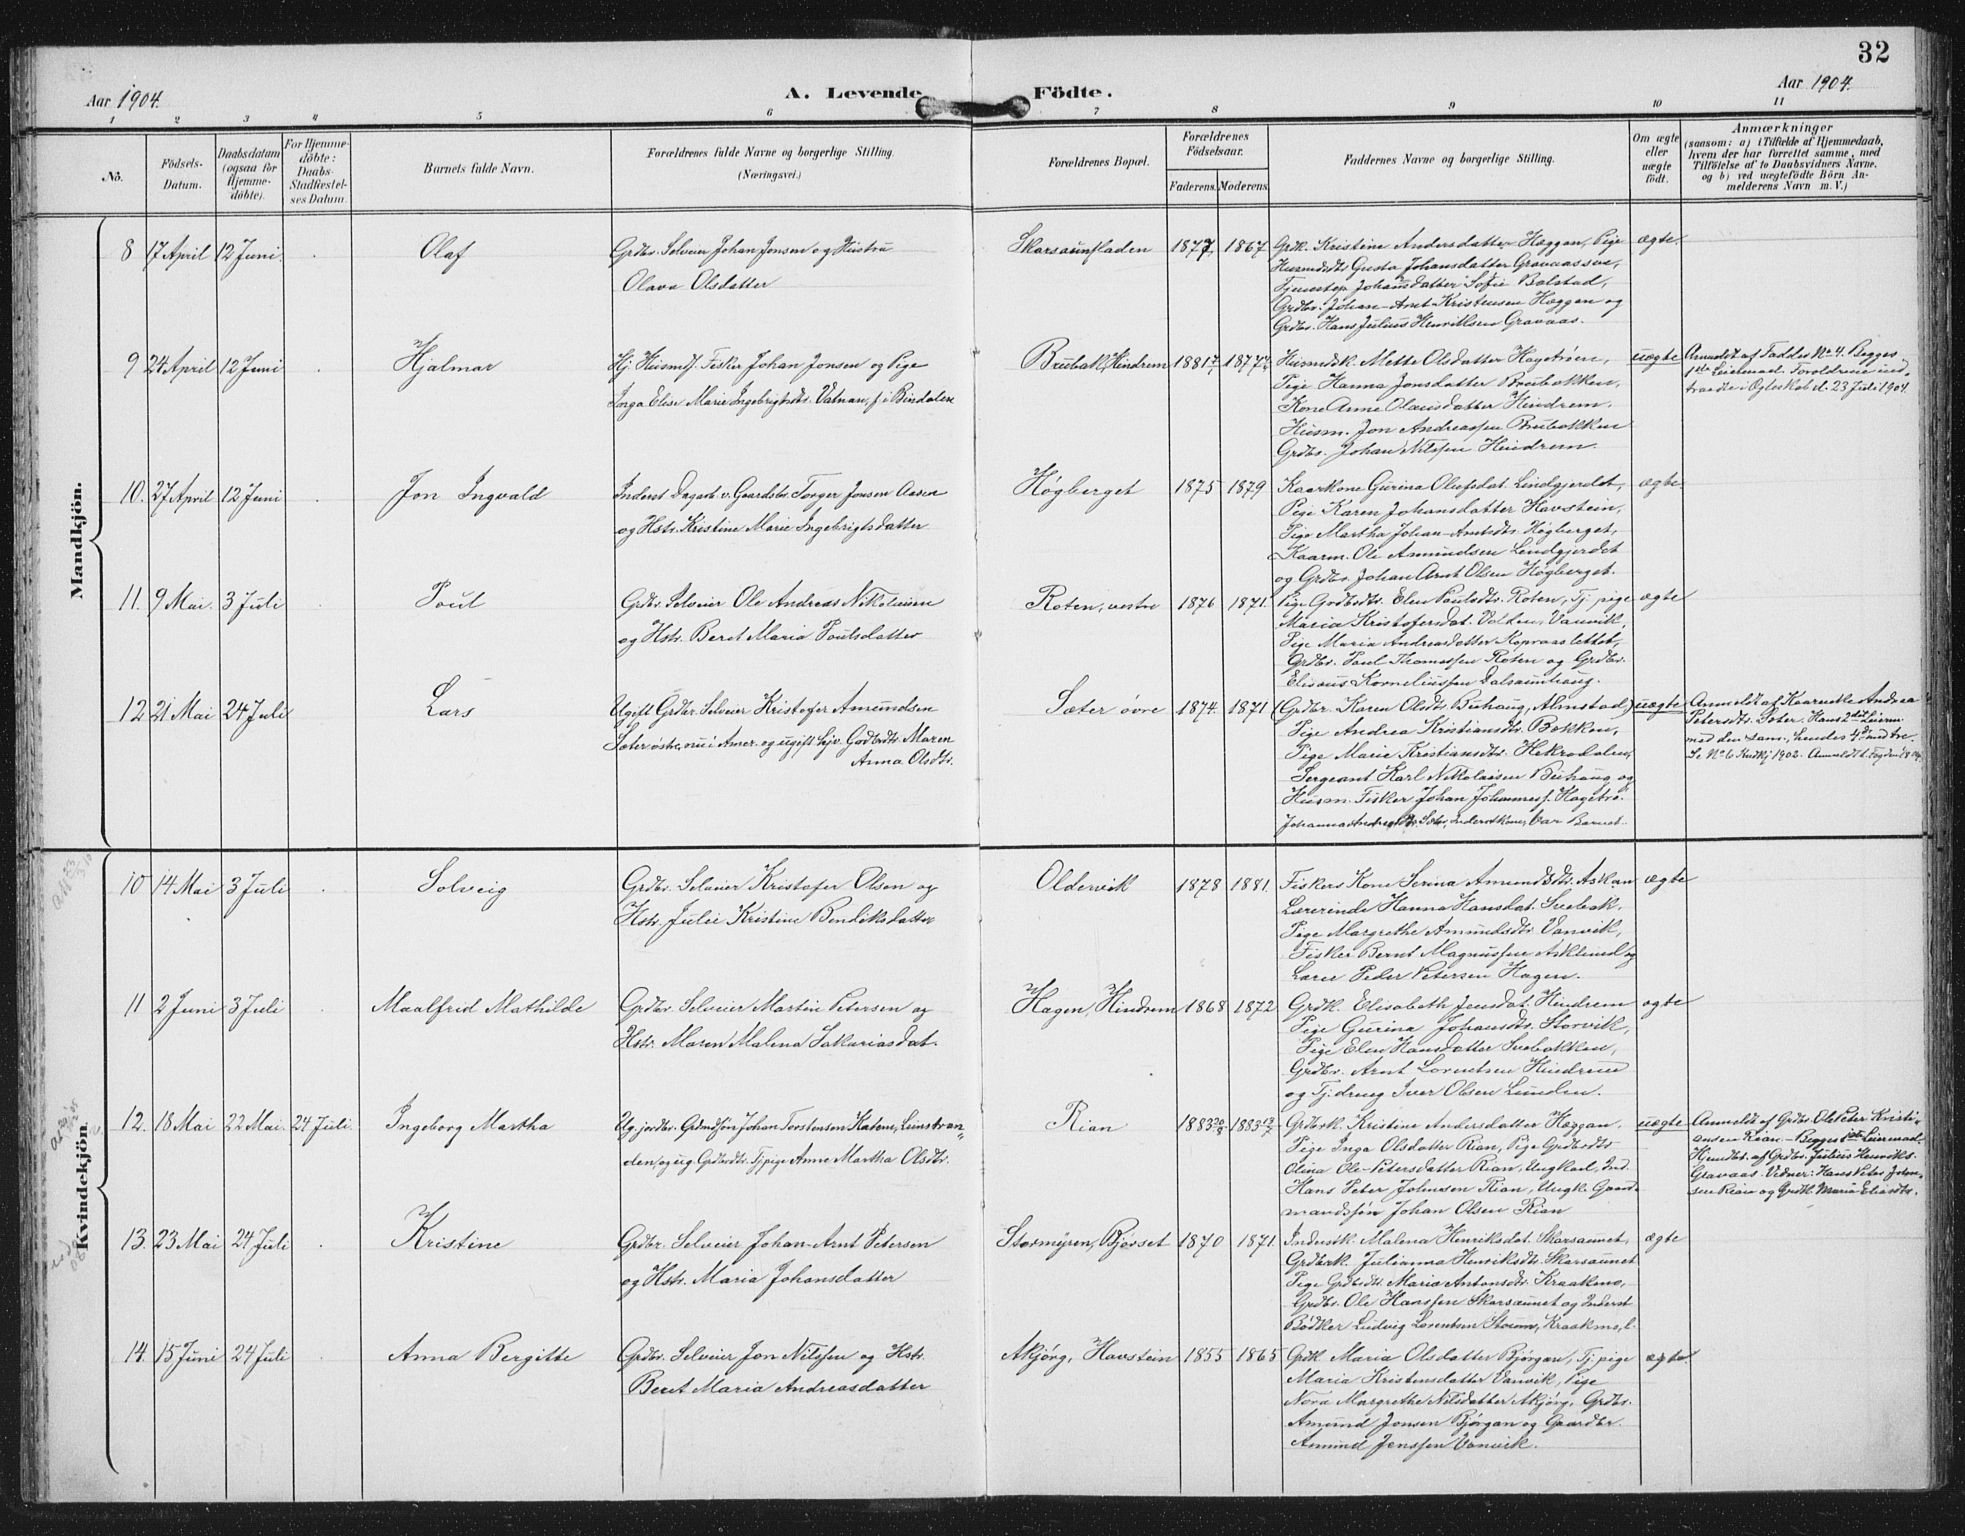 32
Aar 1904.
A. Levende
Födte.
Aar 1904.
1 2 3 4 5 6 7 8 9 10 11
Nö.
Födsels-
Datum.
Daabsdatum
(ogsaa for
Hjemme-
döbte).
For Hjemme-
döbte:
Daabs-
Stadfæstel-
ses Datum.
Barnets fulde Navn.
Forældrenes fulde Navne og borgerlige Stilling.
(Næringsvei.)
Forældrenes Bopæl.
Forældrenes
Födselsaar.
Faderens.
Moderens.
Faddernes Navne og borgerlige Stilling.
Om ægte
eller
uægte
födt.
Anmærkninger
(saasom: a) i Tilfælde af Hjemmedaab,
hvem der har forrettet samme, med
Tilföielse af to Daabsvidners Navne,
og b) ved uægtefödte Börn An-
melderens Navn m. V.)
Mandkjön.
8 17 April 12 Juni.
Olaf
Grdbr. Selveier Johan Jonsen og Hustru
Olava Olsdatter
Skarsaunfladen 1877 1867
Grdk. Kristine Andersdatter Haggan, Pige
Husmdsdtr. Gusta Johansdatter Gravaassve,
Johansdatter Sofie Bolstad,
Grdbr. Johan-Arnt Kristensen Haggan og
Grdbr. Hans Julius Henriksen Gravaas.
ægte.
9 24 April 12 Juni
Hjalmar
Hj. Husmdf. Fisker Johan Jonsen og Pige
Inga Elise Marie Ingebrigtsdtr. Vatnan, f. i Bindalen
Brubak, Hindrem 1881 1877
Husmdsk. Mette Olsdatter Hagetrøen,
Pige Hanna Jonsdatter Brubakken,
Kone Anne Olausdatter Hindrem,
Husm. Jon Andreassen Brubakken
Grdbr. Johan Nilssen Hindrem.
uægte
Anmeldt af Fadder No 4. Begges
1ste Leiermaal. Foroldrene ind-
traadte i Ægteskab d. 23 Juli 1904.
10. 27 April 12 Juni
Jon Ingvald
Inderst Dagarb. v. Gaardsbr. Torger Jonsen Aasen
og Hstr. Kristine Marie Ingebrigtsdatter
Høgberget 1875 1879
Kaarkone Gurina Olufsdat. Lindgjerdet,
Pige Karen Johansdatter Havstein,
Pige Martha Johan-Arntsdtr. Høgberget,
Kaarm. Ole Amundsen Lindgjerdet
og Grdbr. Johan Arnt Olsen Høgberget.
ægte
11. 9 Mai. 3 Juli
Poul
Grdbr. Selveier Ole Andreas Nikolaisen
og Hstr. Beret Maria Poulsdatter
Roten, vestre 1876 1871.
Pige Grdbrdtr. Elen Paulsdtr. Roten, Tj. pige
Maria Kristofersdat. Volden, Vanvik,
Pige Maria Andreasdatter Kopraaslettet,
Grdbr. Paul Thomassen Roten og Grdbr.
Elisæus Korneliussen Dalsaunhaug.
ægte
12. 21 Mai 24 Juli
Lars
Ugift Grdbr. Selveier Kristofer Amundsen
Sæter østre, nu i Amer. og ugift hjv. Grdbrdtr. Maren
Anna Olsdtr.
Sæter øvre 1874. 1871
(Grdbr. Karen Olsdtr. Buhaug, Almstad)
Pige Andrea Kristiansdtr. Bakken,
Pige Marie Kristiansdtr. Hekrodalen,
Sergeant Karl Nikolaisen Buhaug og
Husm. Fisker Johan Johannesf. Hagetrø.
Inderstkone, bar Barnet.
uægte
Anmeldt af Kaarenke Andrea
Petersdtr. Sæter. Hans 2det Leierm.
med den samme, hendes 4de med tre.
Se No 6 Kvdkj 1902.
Kvindekjön.
10 14 Mai 3 Juli
Solveig
Grdbr. Selveier Kristofer Olsen og
Hstr. Julie Kristine Bendiksdatter
Oldervik 1878 1881.
Fiskers Kone Serina Amundsdtr. Asklan
Lærerinde Hanna Hansdat. Svebak.
Pige Margrethe Amundsdtr. Vanvik,
Fisker Bernt Magnussen Asklund og
Lærer Peder Petersen Hagen.
ægte
11 2 Juni 3 Juli
Maalfrid Mathilde
Grdbr. Selveier Martin Petersen og
Hstr. Maren Malena Sakariasdat.
Hagen, Hindrem 1868 1872
Grdk. Elisabeth Jensdat. Hindrem
Pige Gurina Johansdtr. Storvik,
Pige Elen Hansdatter Svebakken,
Grdbr. Arnt Lorentsen Hindrem
og Tj.dreng Iver Olsen Lunden.
ægte
12. 18 Mai 22 Mai. 24 Juli.
Ingeborg Martha
Ug. jordbr. Grdmdsøn Johan Torstensen Katem, Leinstran-
den, og ug. Grdbrdtr. Tj.pige Anne Martha Olsdtr.
Rian 1883 1883
Grdbrk. Kristine Andersdatter Haggan.
Pige Inga Olsdatter Rian, Pige Grdbrdtr.
Olina Ole-Petersdatter Rian, Ungkarl, Ind.
Hans Peter Johnsen Rian, Ungk. Gaard-
mandssøn Johan Olsen Rian
uægte
Anmeldt af Grdbr. Ole Peter Kristi-
ansen Rian. Begges 1ste Leiermaal.
Hjmdbt. af Grdbr. Julius Henriks.
Gravaas. Vidner: Hans Peter John-
sen Rian og Grdk. Maria Eliasdtr.
13. 23 Mai 24 Juli
Kristine
Grdbr. Selveier Johan-Arnt Petersen
og Hstr. Maria Johansdatter
Stormyren, Bjørset 1870 1871.
Inderstk. Malena Henriksdat. Skarsaunet,
Grdbrk. Julianna Henriksdtr. Skarsaunet
Pige Grdbrdtr. Maria Antonsdtr. Kraakmo,
Grdbr. Ole Hanssen Skarsaunet og Inderst
Bødker Ludvig Lorentsen Kraakmo,
ægte
14. 15 Juni 24 Juli
Anna Bergitte
Grdbr. Selveier Jon Nilssen og Hstr.
Beret Maria Andreasdatter
Akjørg, Havstein 1855 1865
Grdk. Maria Olsdatter Bjørgan, Tj pige
Maria Kristensdatter Vanvik, Pige
Nora Margrethe Nilsdatter Akjørg, Grdbr.
Amund Jonsen Bjørgan og Gaardbr.
Amund Jenssen Vanvik.
ægte.